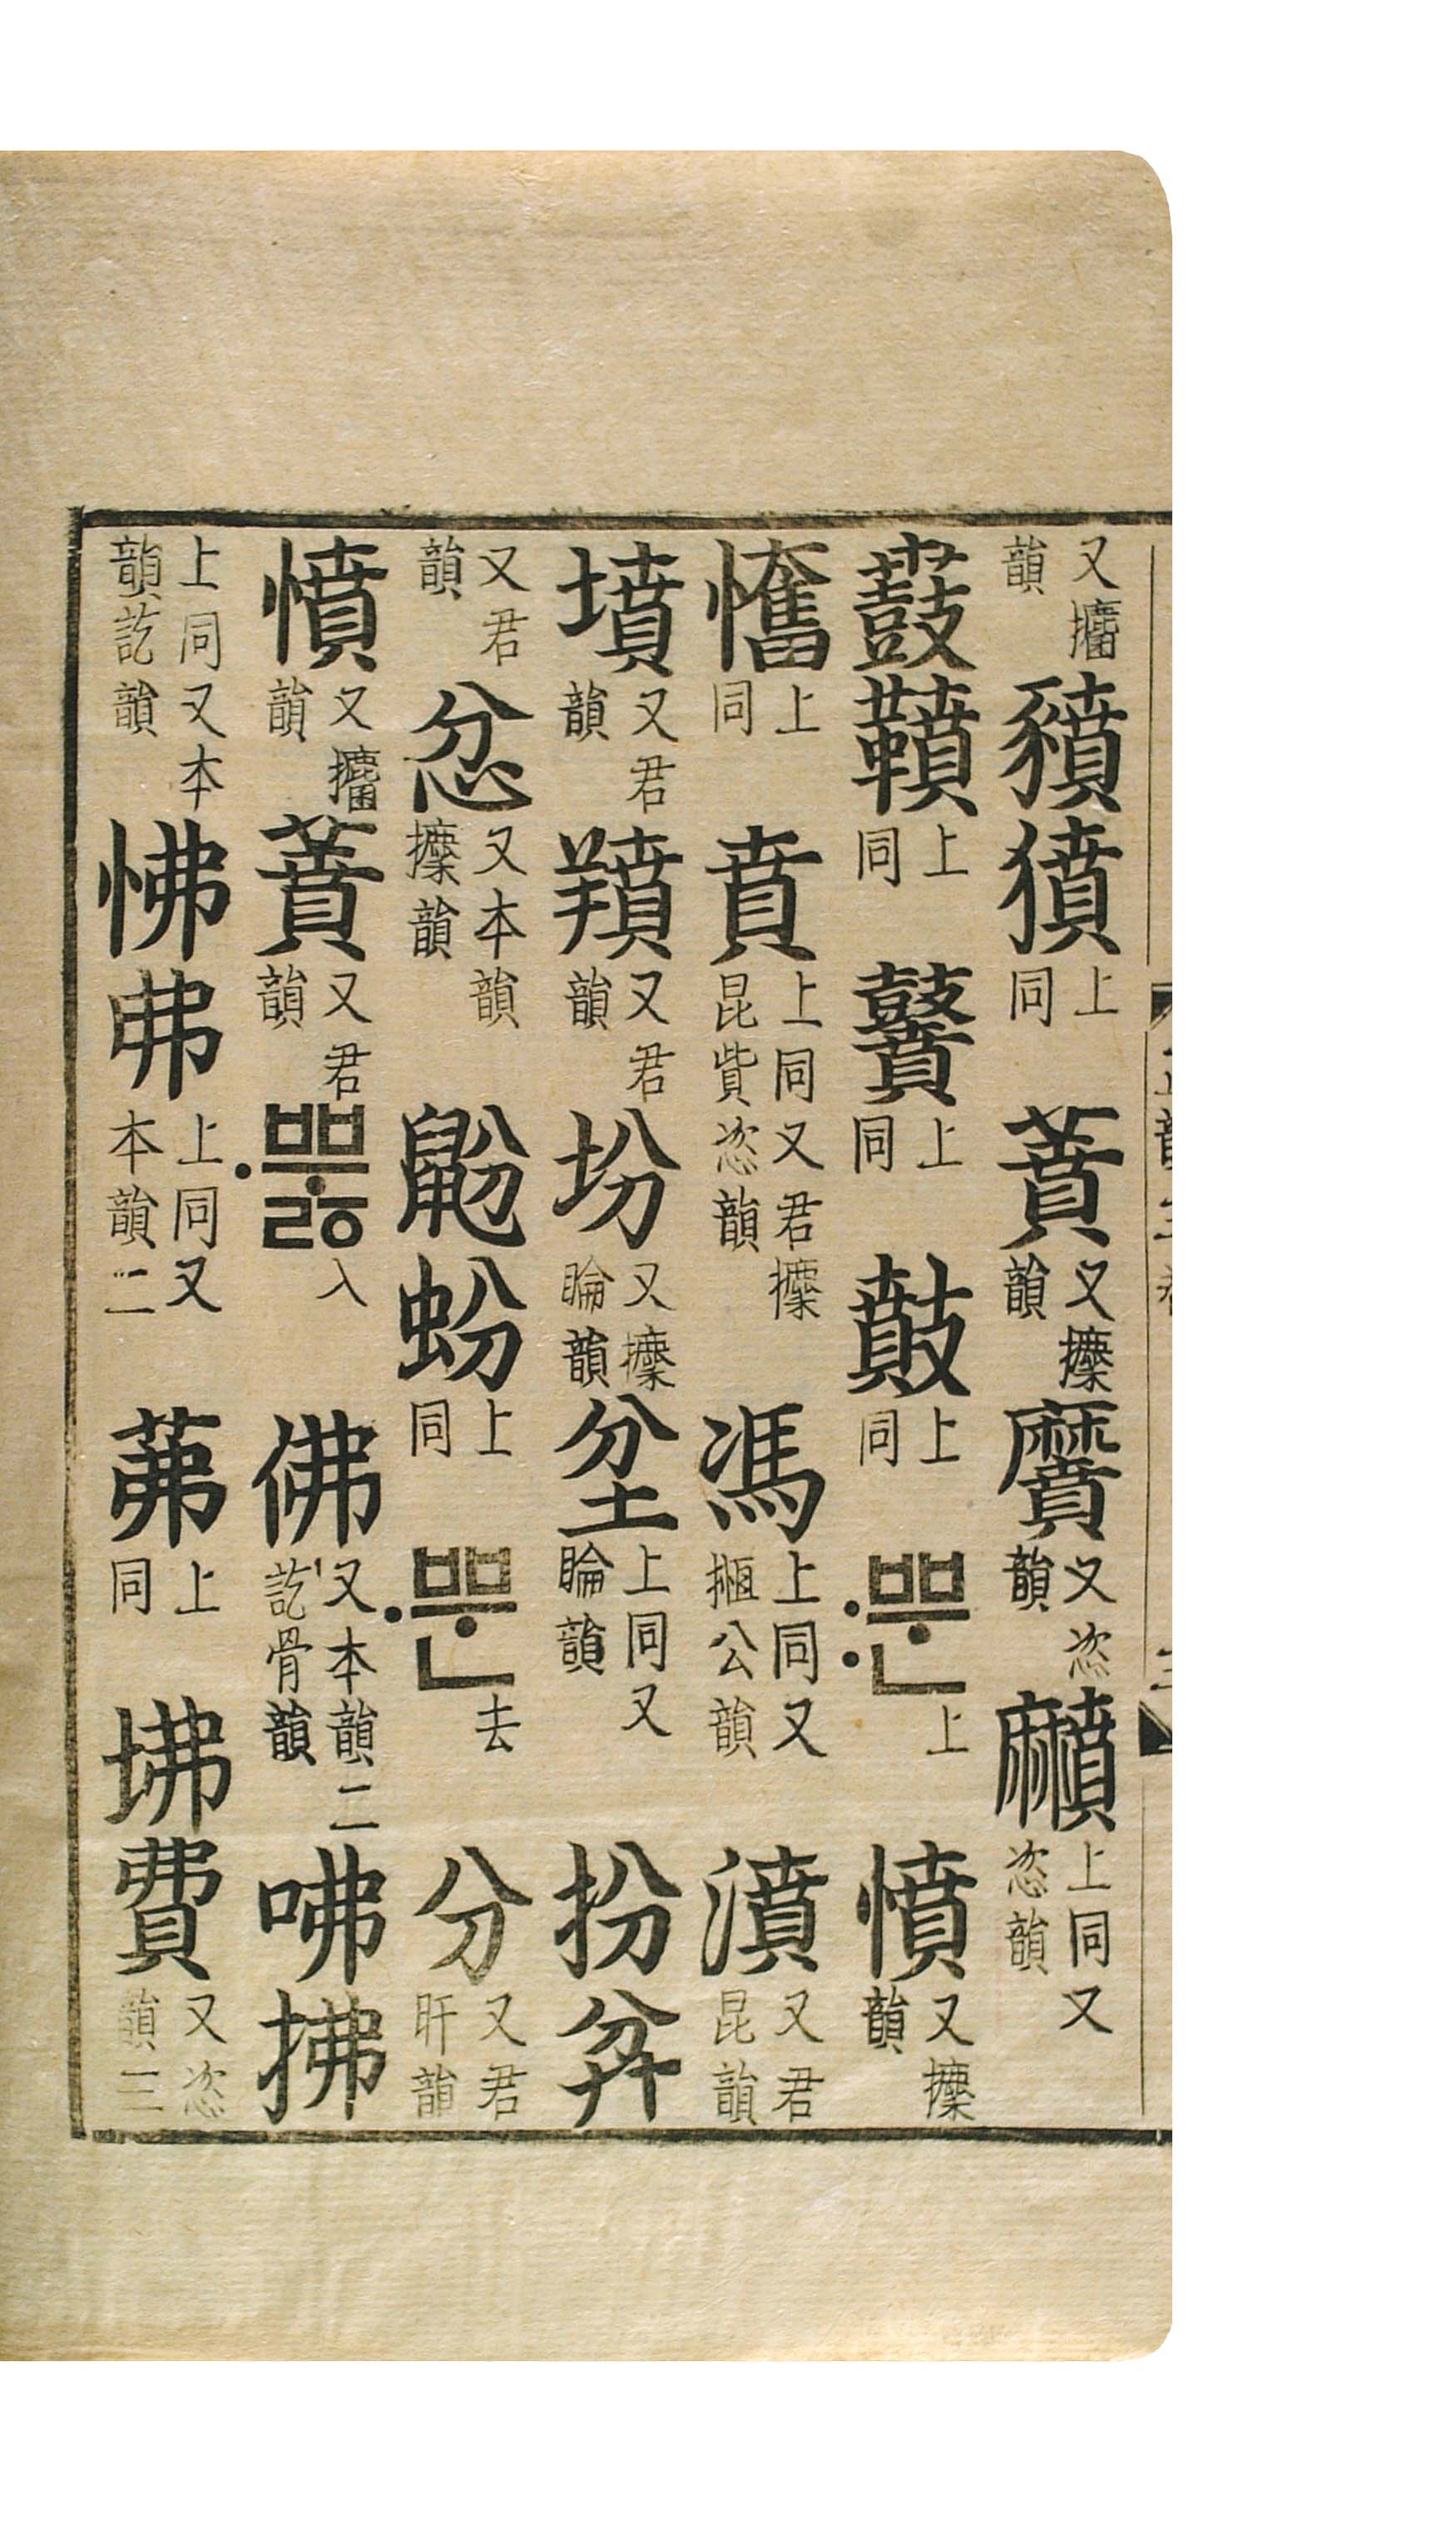 又攟韻豶獖上同蕡又攈韻黂又恣韻上同又恣韻
鼖䩿上同上同上同〯뿐上憤又攈韻
上同賁上同又君攈昆貲恣韻馮上同又揯公韻濆又君昆韻
墳又君韻羵又君韻坋又攈睔韻坌上同又睔韻扮弅
又君韻忿又本韻攈韻鼢蚡上同〮뿐去分又君旰韻
憤又攟韻蕡又君韻〮뿌ᇙ入佛又本韻二訖骨韻咈拂
上同又本韻訖韻怫上同又本韻二茀上同坲費又恣韻三